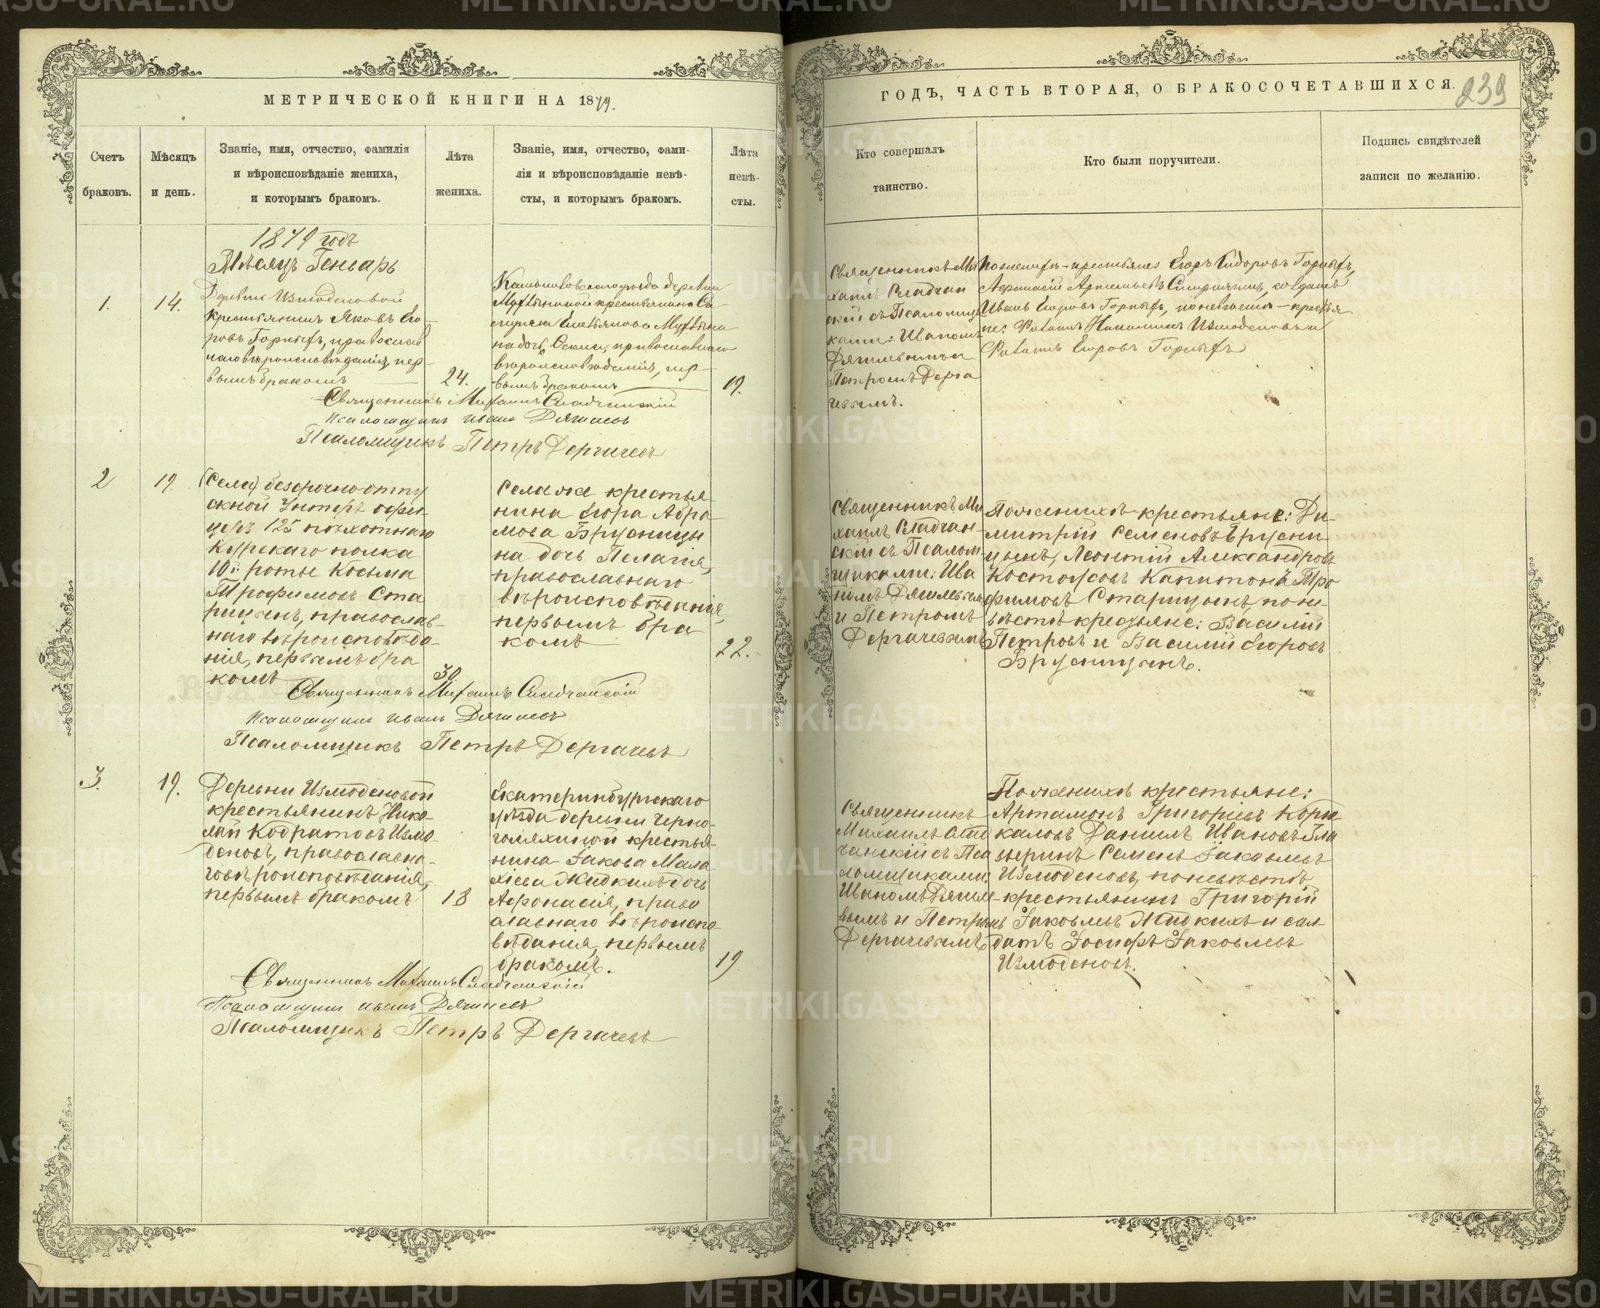 МЕТРИЧЕСКОЙ КНИГИ НА 1879.
Счетъ браковъ.
Мѣсяцъ и день.
Званіе, имя, отчество, фамилія
и вѣроисповѣданіе жениха,
и которымъ бракомъ.
Лѣта жениха.
Званіе, имя, отчество, фами-
лія и вѣроисповѣданіе невѣ-
сты, и которымъ бракомъ.
Лѣта невѣ-
сты.
1879 годъ
Мѣсяцъ Генварь
1.
14.
Деревни Измоденовой
крестьянинъ Яковъ Его-
ровъ Горныхъ, православ
наго вѣроисповѣданія, пер-
вымъ бракомъ
24.
уѣзда деревни
крестьянина
дочь
православнаго
вѣроисповѣданія, пер-
вымъ бракомъ
19.
Священникъ Михаилъ Сладчанскій
Псаломщикъ Иванъ Дягилевъ
Псаломщикъ Петръ Дергачевъ
2
19
(Села) безсрочноотпу
скной Унтеръ офи-
церъ 125 пѣхотнаго
Курскаго полка
10й роты Косьма
Трофимовъ Ста
рицынъ, православ-
наго вѣроисповѣда-
нія, первымъ бра
комъ
30.
Села же крестья-
нина Егора Абра-
мова Брусницы
на дочь Пелагія,
православнаго
вѣроисповѣданія,
первымъ бра
комъ
22.
Священникъ Михаилъ Сладчанскій
Псаломщикъ Иванъ Дягилевъ
Псаломщикъ Петръ Дергачевъ
3.
19.
Деревни Измоденовой
крестьянинъ Нико-
лай Кодратовъ Измо
деновъ, православна-
го вѣроисповѣданія,
первымъ бракомъ
18
Екатеринбургскаго
уѣзда деревни Черно-
голяхиной крестья-
нина Іакова Мала
хіева Жидкихъ дочь
Афонасія, право
славнаго вѣроиспо
вѣданія, первымъ
бракомъ.
19
Священникъ Михаилъ Сладчанскій
Псаломщикъ Иванъ Дягилевъ
Псаломщикъ Петръ Дергачевъ
ГОДЪ, ЧАСТЬ ВТОРАЯ, О БРАКОСОЧЕТАВШИХСЯ.
239
Кто совершалъ
таинство.
Кто были поручители.
Подпись свидѣтелей
записи по желанію.
Священникъ Ми
хаилъ Сладчан
скій съ Псаломщи
ками: Иваномъ
Дягилевымъ и
Петромъ Дерга
чевымъ.
По женихѣ - крестьяне Егоръ Сидоровъ Горныхъ,
солдатъ
Иванъ Егоровъ Горныхъ, по невѣстѣ - крестья
не:
Егоровъ Горныхъ
Священникъ Ми
хаилъ Сладчан-
скій съ Псалом
щиками: Ива
номъ Дягилевымъ
и Петромъ
Дергачевымъ
По женихѣ крестьяне: Ди-
митрій Семеновъ Брусни-
цынъ, Леонтій Александровъ
Костоусовъ Капитонъ Тро
фимовъ Старицынъ, по не-
вѣстѣ крестьяне: Василій
Петровъ и Василій Егоровъ
Брусницынъ.
Священникъ
Михаилъ Слад
чанскій съ Пса
ломщиками,
Иваномъ Дягиле-
вымъ и Петромъ
Дергачевымъ
По женихѣ крестьяне:
Артамонъ Григорьевъ Коры
каловъ Даніилъ Ивановъ Гла
зыринъ Семенъ Іаковлевъ
Измоденовъ, по невѣстѣ
- крестьянинъ Григорій
Іаковлевъ Жидкихъ и сол-
датъ Іосифъ Іаковлевъ
Измоденовъ.
METRIKI.GASO-URAL.RU